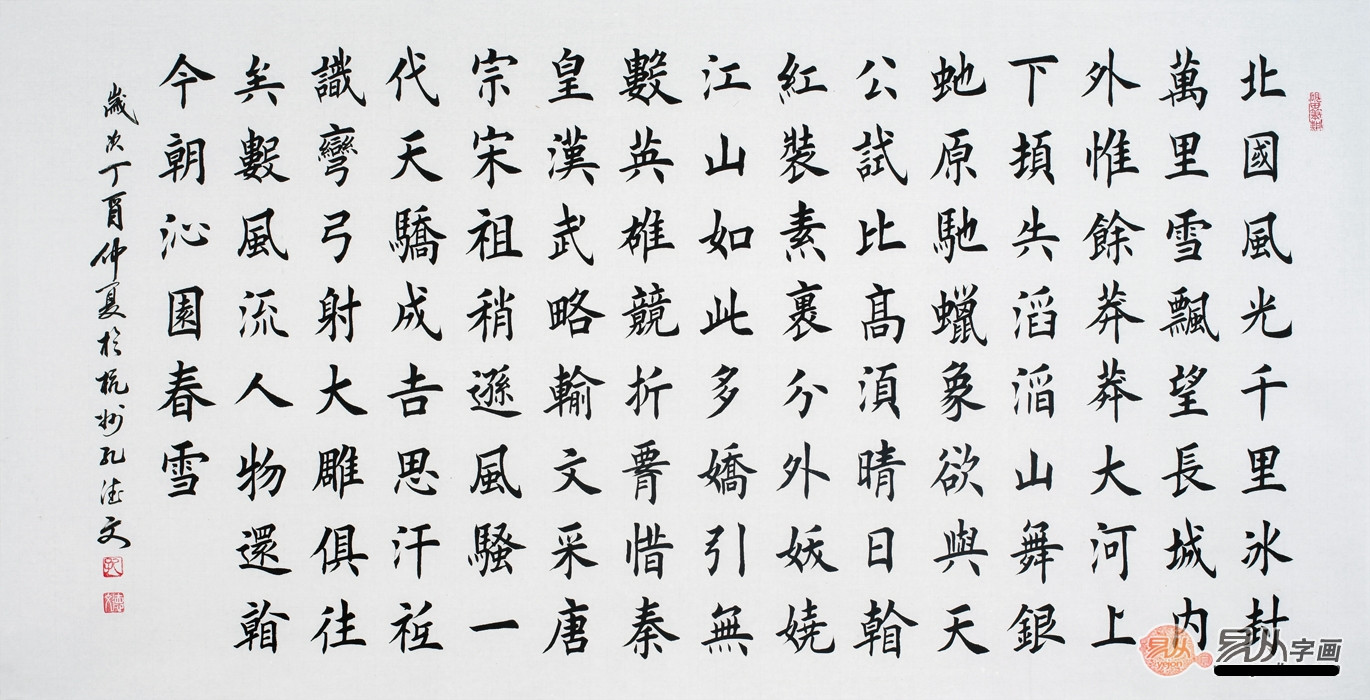 北國風光千里冰封
萬里雪飄望長城内
外惟餘莽莽大河上
下頓失滔滔山舞銀
虵原馳蠟象欲與天
公試比髙湏晴日看
紅裝素裹分外妖嬈
江山如此多嬌引無
數英雄競折腰惜秦
皇漢武略輸文采唐
宗宋祖稍遜風騷一
代天驕成吉思汗祗
識彎弓射大雕俱往
矣數風流人物還看
今朝沁園春雪
歲次丁酉仲夏於杭州孔德文
易从字画